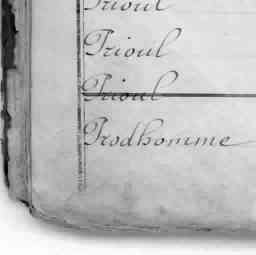 Trioul
Trioul
Trioul
Prodhomme